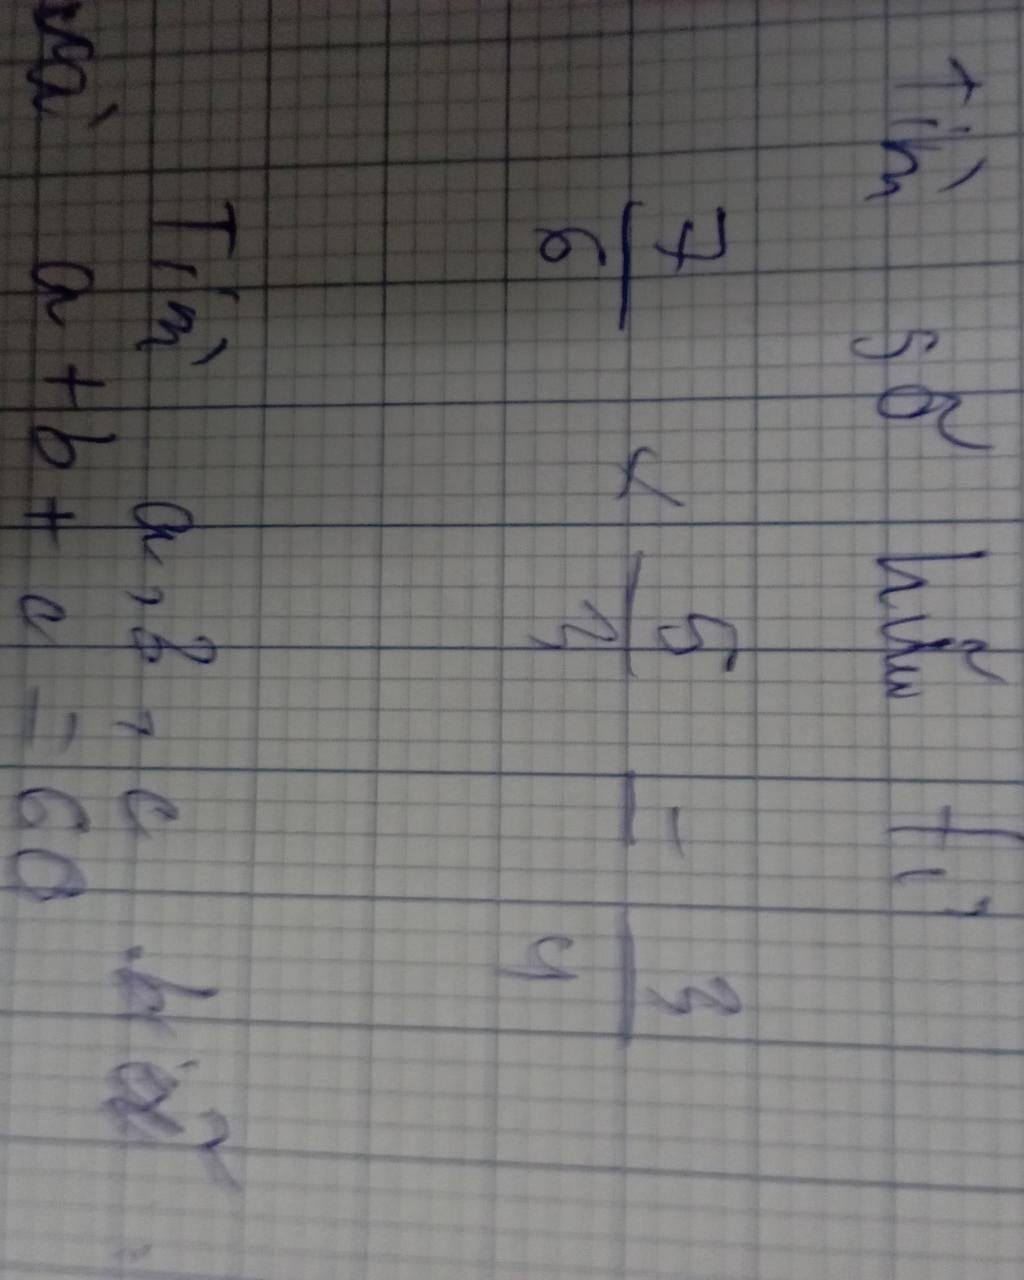 Tìm số hữu tỉ
7/6 x 5/3 - 3/4
Tìm a, b, c biết
và a + b + c = 60